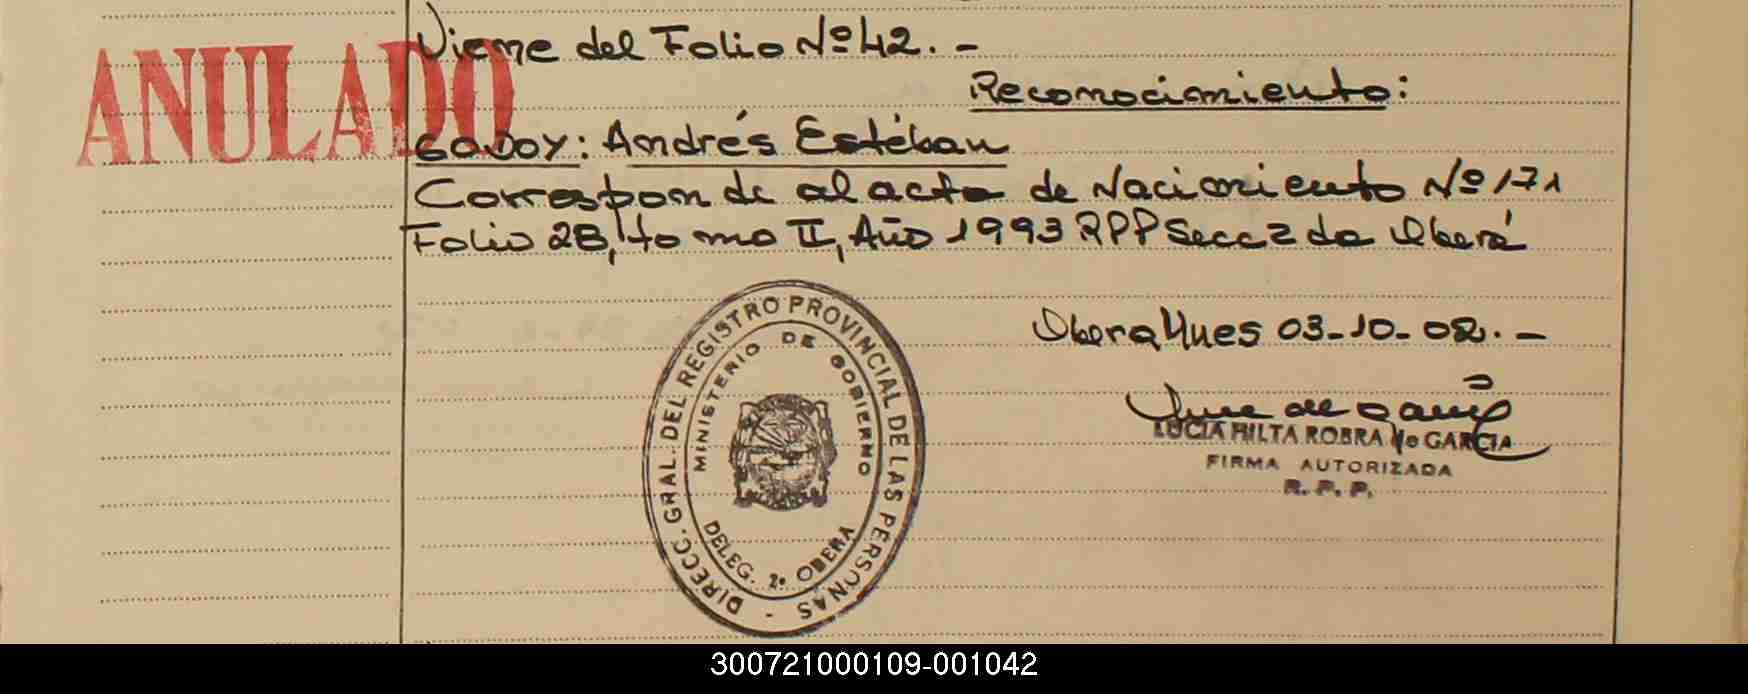 Viene del Folio Nº 42. -
Reconocimiento:
ANULADO
GODOY: Andrés Estéban
Corresponde al acta de Nacimiento Nº 171
Folio 28, tomo II, Año 1993 RPP Secc 2 da Oberá
Oberá Mnes 03-10-02. -
LUCIA HILTA ROBRA de GARCIA
FIRMA AUTORIZADA
R. P. P.
DIRECC. GRAL. DEL REGISTRO PROVINCIAL DE LAS PERSONAS -
MINISTERIO DE GOBIERNO
DELEG. 2º OBERA
300721000109-001042